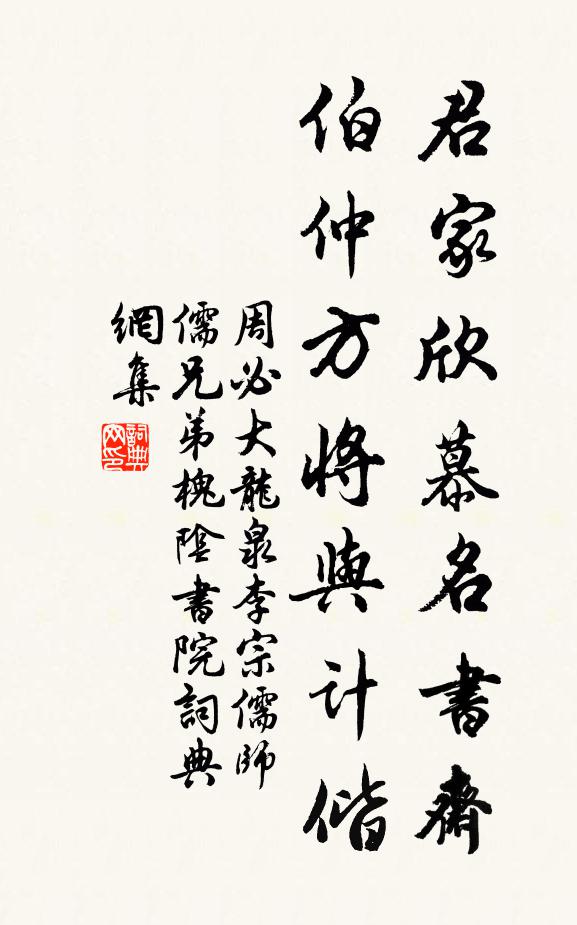 君家欣慕名書齋
伯仲方將與计偕
周必大龍泉李宗儒師
儒兄弟槐陰書院詞典
網集
詞典
网印